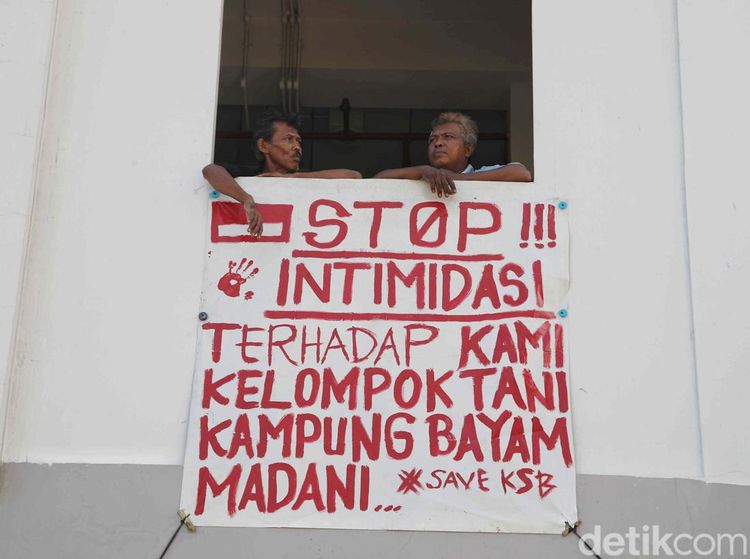 STOP !!!
INTIMIDASI
TERHADAP KAMI
KELOMPOK TANI
KAMPUNG BAYAM
MADANI... #SAVE KSB
detikcom